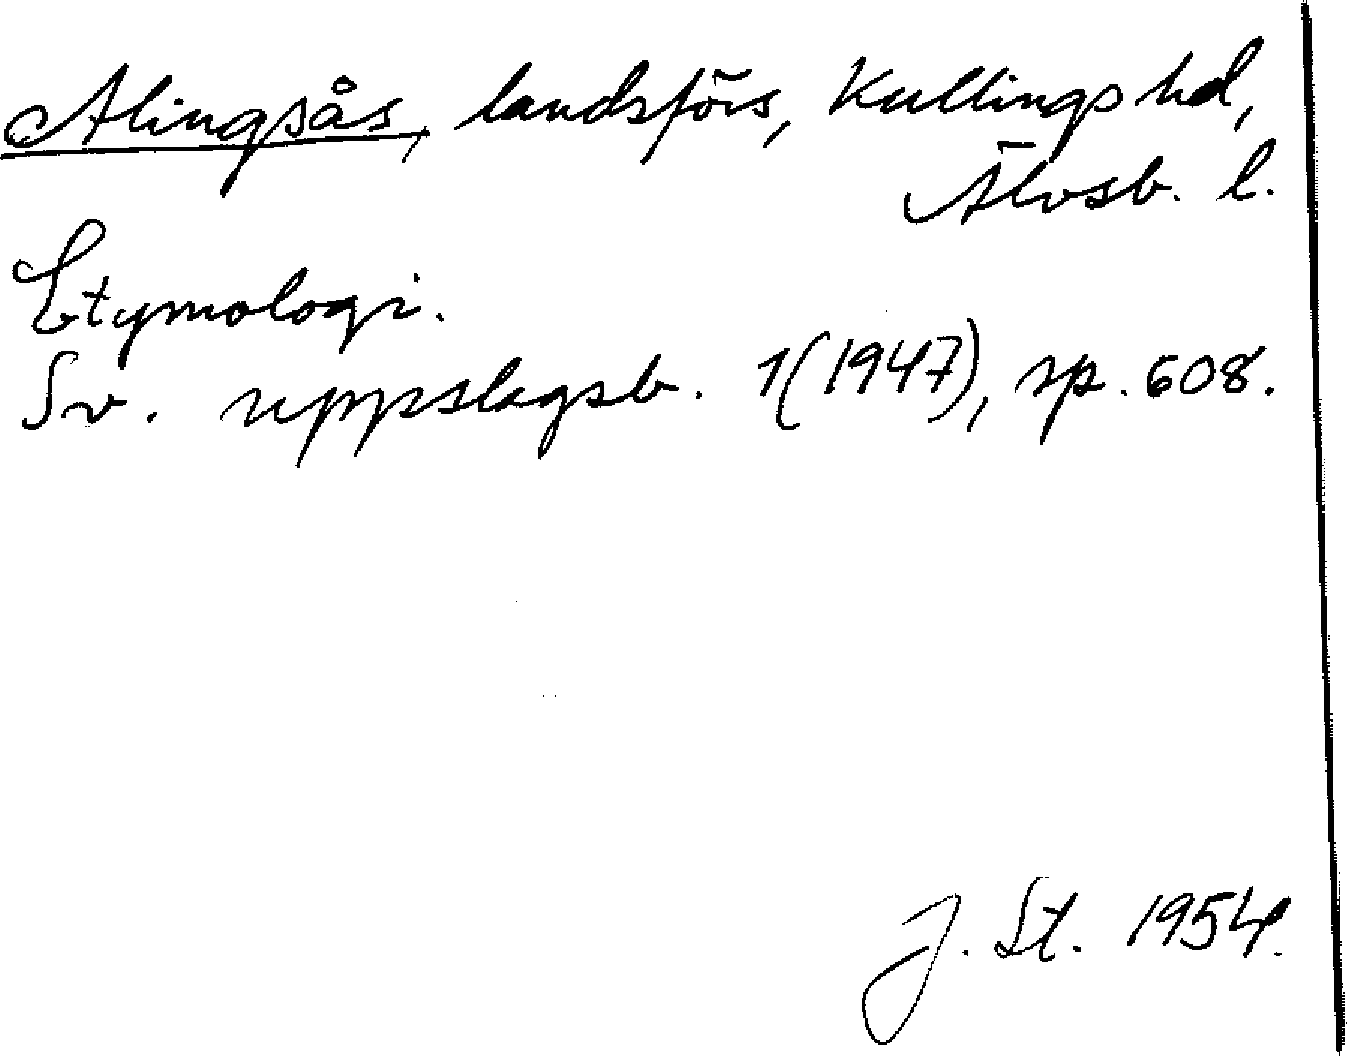 Alingsås, landsförs, Kullings hd,
Älvsb. l.
Etymologi.
Sv. uppslagsb. 1(1947), sp. 608.
J. St. 1954.